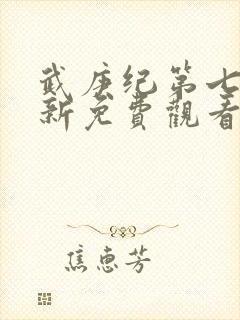 武庚纪第七
新免費觀看
焦惠芳